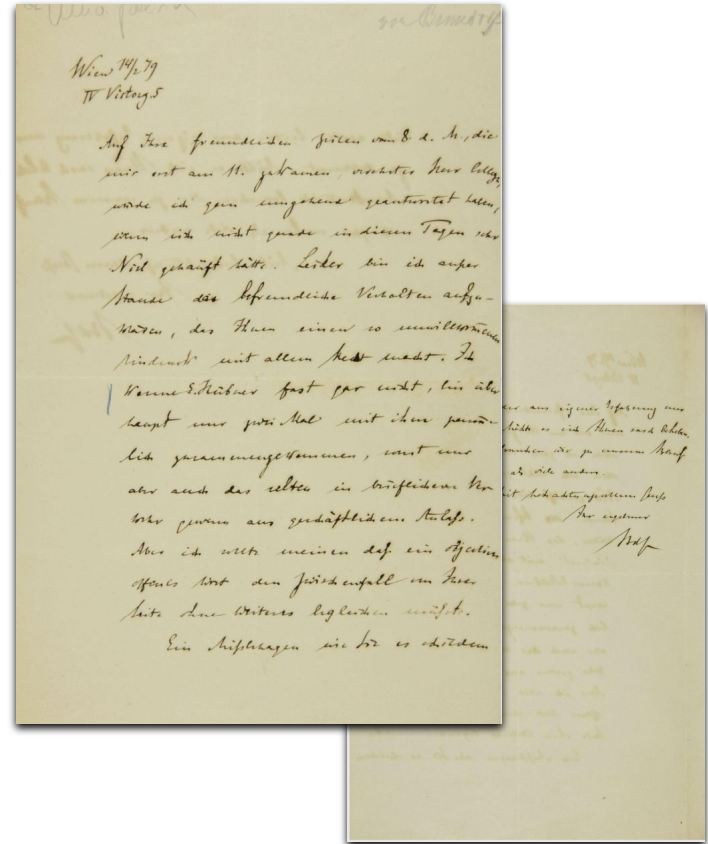 Wien 14/2 79
IV Victorg. 5
Auf Ihre freundlichen Zeilen vom 8. d. M., die
mir erst am 11. zukamen, verehrter Herr College,
würde ich gern umgehend geantwortet haben,
wenn sich nicht gerade in diesen Tagen sehr
Viel gehäuft hätte. Leider bin ich außer
Stande das befremdliche Verhalten aufzu-
klären, das Ihnen einen so unwillkommenen
Eindruck mit allem Recht macht. Ich
kenne E. Hübner fast gar nicht, bin über
haupt nur zwei Mal mit ihm persön-
lich zusammengekommen, sonst nur
aber auch das selten in brieflichem Ver
kehr gewesen aus geschäftlichem Anlaß.
Aber ich sollte meinen daß ein
offenes Wort den Zwischenfall von Ihrer
Seite ohne Weiteres begleichen müßte.
Ein Mißbehagen wie Sie es schildern
aus eigener Erfahrung nur
es sich Ihnen nach
die zu unserem Beruf
als viele andere
Mit hochachtungsvollem Gruß
Ihr ergebener